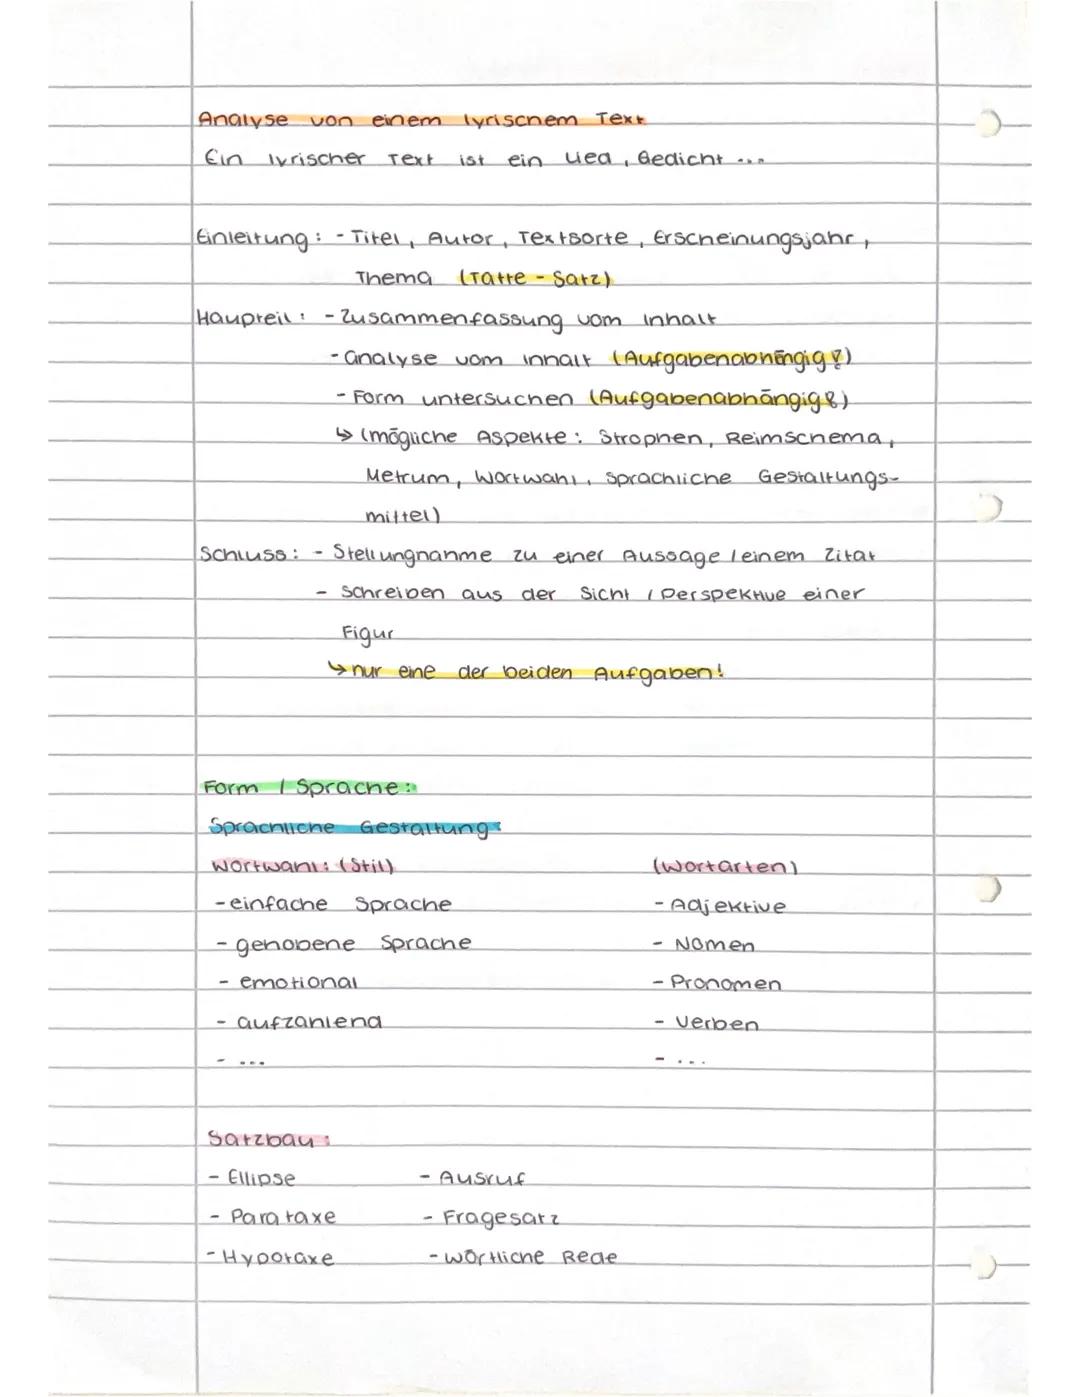 Analyse von einem lyrischem Text
Ein lyrischer Text ist ein Lied, Gedicht ...
Einleitung: - Titel, Autor, Textsorte, Erscheinungsjahr,
Thema (Tatte-Satz)
Haupteil: - Zusammenfassung vom Inhalt
- analyse vom Inhalt (Aufgabenabhängig!)
- Form untersuchen (Aufgabenabhängig!)
↳ (mögliche Aspekte: Strophen, Reimschema,
Metrum, Wortwahl, sprachliche Gestaltungs-
mittel)
Schluss: - Stellungnahme zu einer Aussage / einem Zitat
- Schreiben aus der Sicht / Perspektive einer
Figur
↳ nur eine der beiden Aufgaben!
Form / Sprache:
Sprachliche Gestaltung:
Wortwahl: (Stil) (Wortarten)
- einfache Sprache - Adjektive
- gehobene Sprache - Nomen
- emotional - Pronomen
- aufzählend - Verben
- ... - ...
Satzbau:
- Ellipse - Ausruf
- Parataxe - Fragesatz
- Hypotaxe - wörtliche Rede